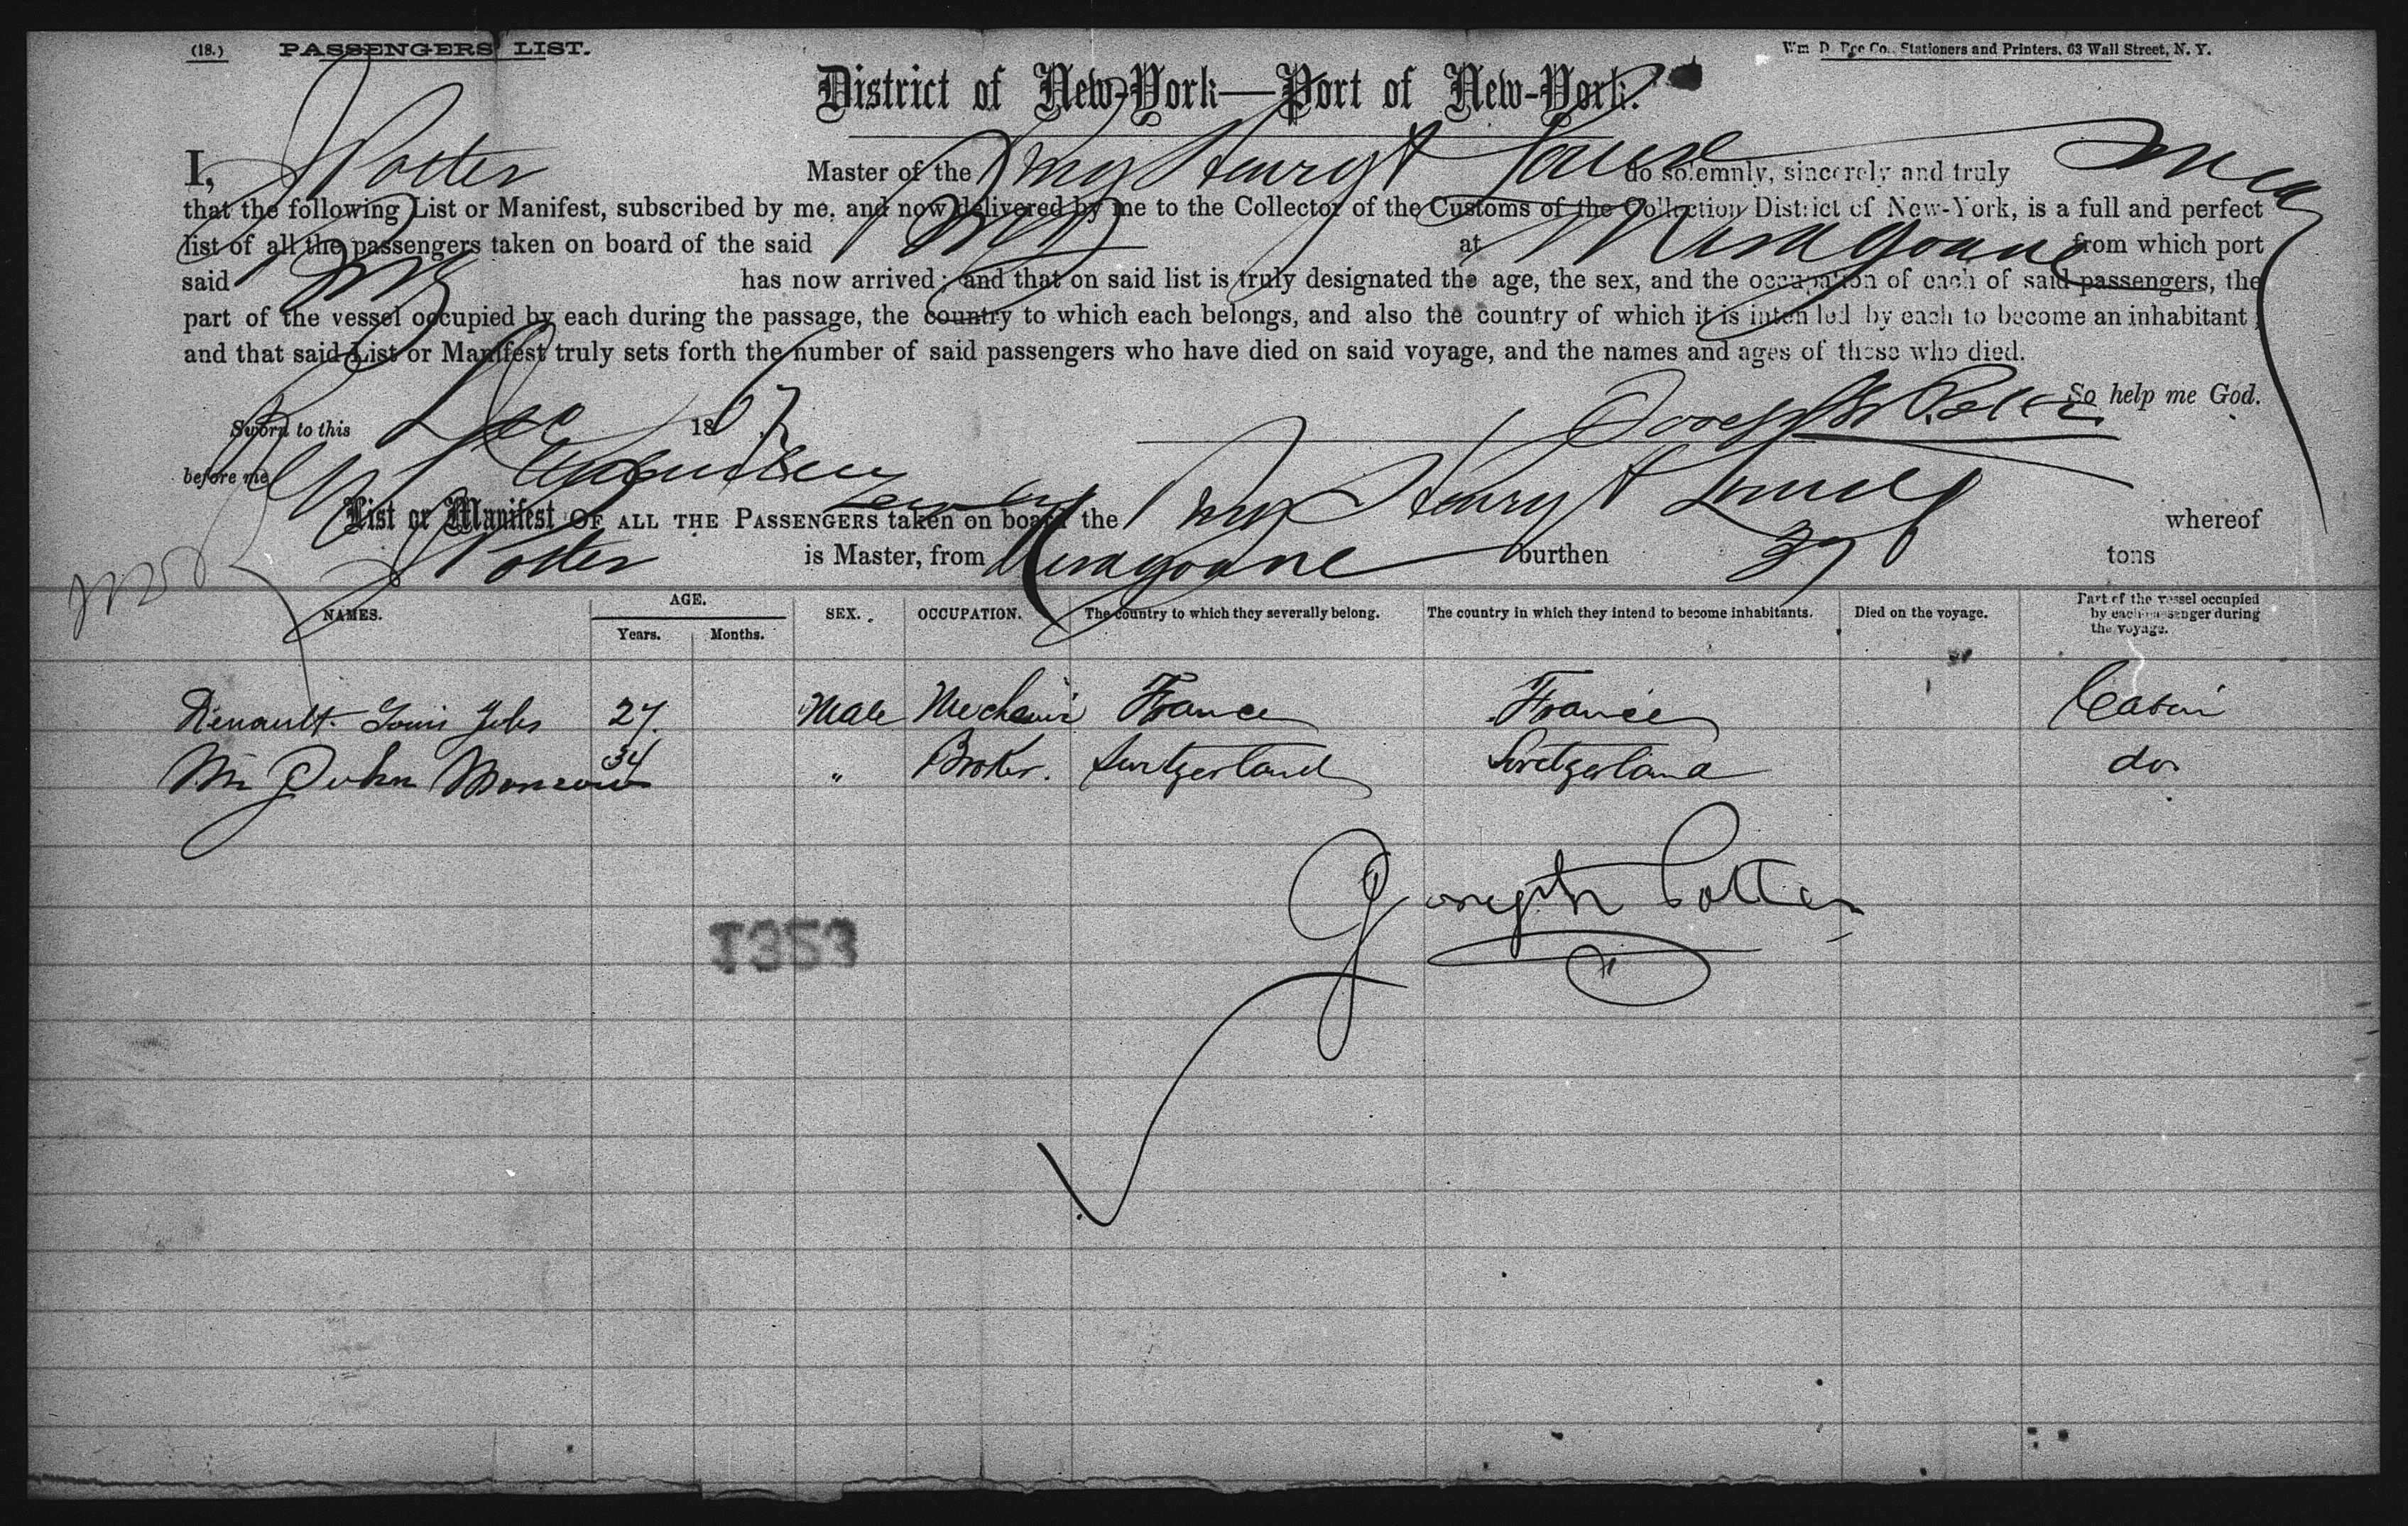 (18.) PASSENGERS LIST. Wm. D. Roe Co., Stationers and Printers, 63 Wall Street, N. Y.
District of New-York—Port of New-York.
I, J Potter Master of the Henry A do solemnly, sincerely and truly swear
that the following List or Manifest, subscribed by me, and now delivered by me to the Collector of the Customs of the Collection District of New-York, is a full and perfect
list of all the passengers taken on board of the said Brig at Miragoane from which port
said Brig has now arrived; and that on said list is truly designated the age, the sex, and the occupation of each of said passengers, the
part of the vessel occupied by each during the passage, the country to which each belongs, and also the country of which it is intended by each to become an inhabitant;
and that said List or Manifest truly sets forth the number of said passengers who have died on said voyage, and the names and ages of those who died.
So help me God.
Sworn to this Dec 1867 Joseph Potter
before me
List or Manifest OF ALL THE PASSENGERS taken on board the Brig Henry A whereof
J Potter is Master, from Miragoane burthen tons
NAMES. AGE. Years. Months. SEX. OCCUPATION. The country to which they severally belong. The country in which they intend to become inhabitants. Died on the voyage. Part of the vessel occupied by each passenger during the voyage.
Renault Louis Jules 27. Male Mechanic France France Cabin
Mr John 34 " Broker. Switzerland Switzerland do.
Joseph Potter
1353